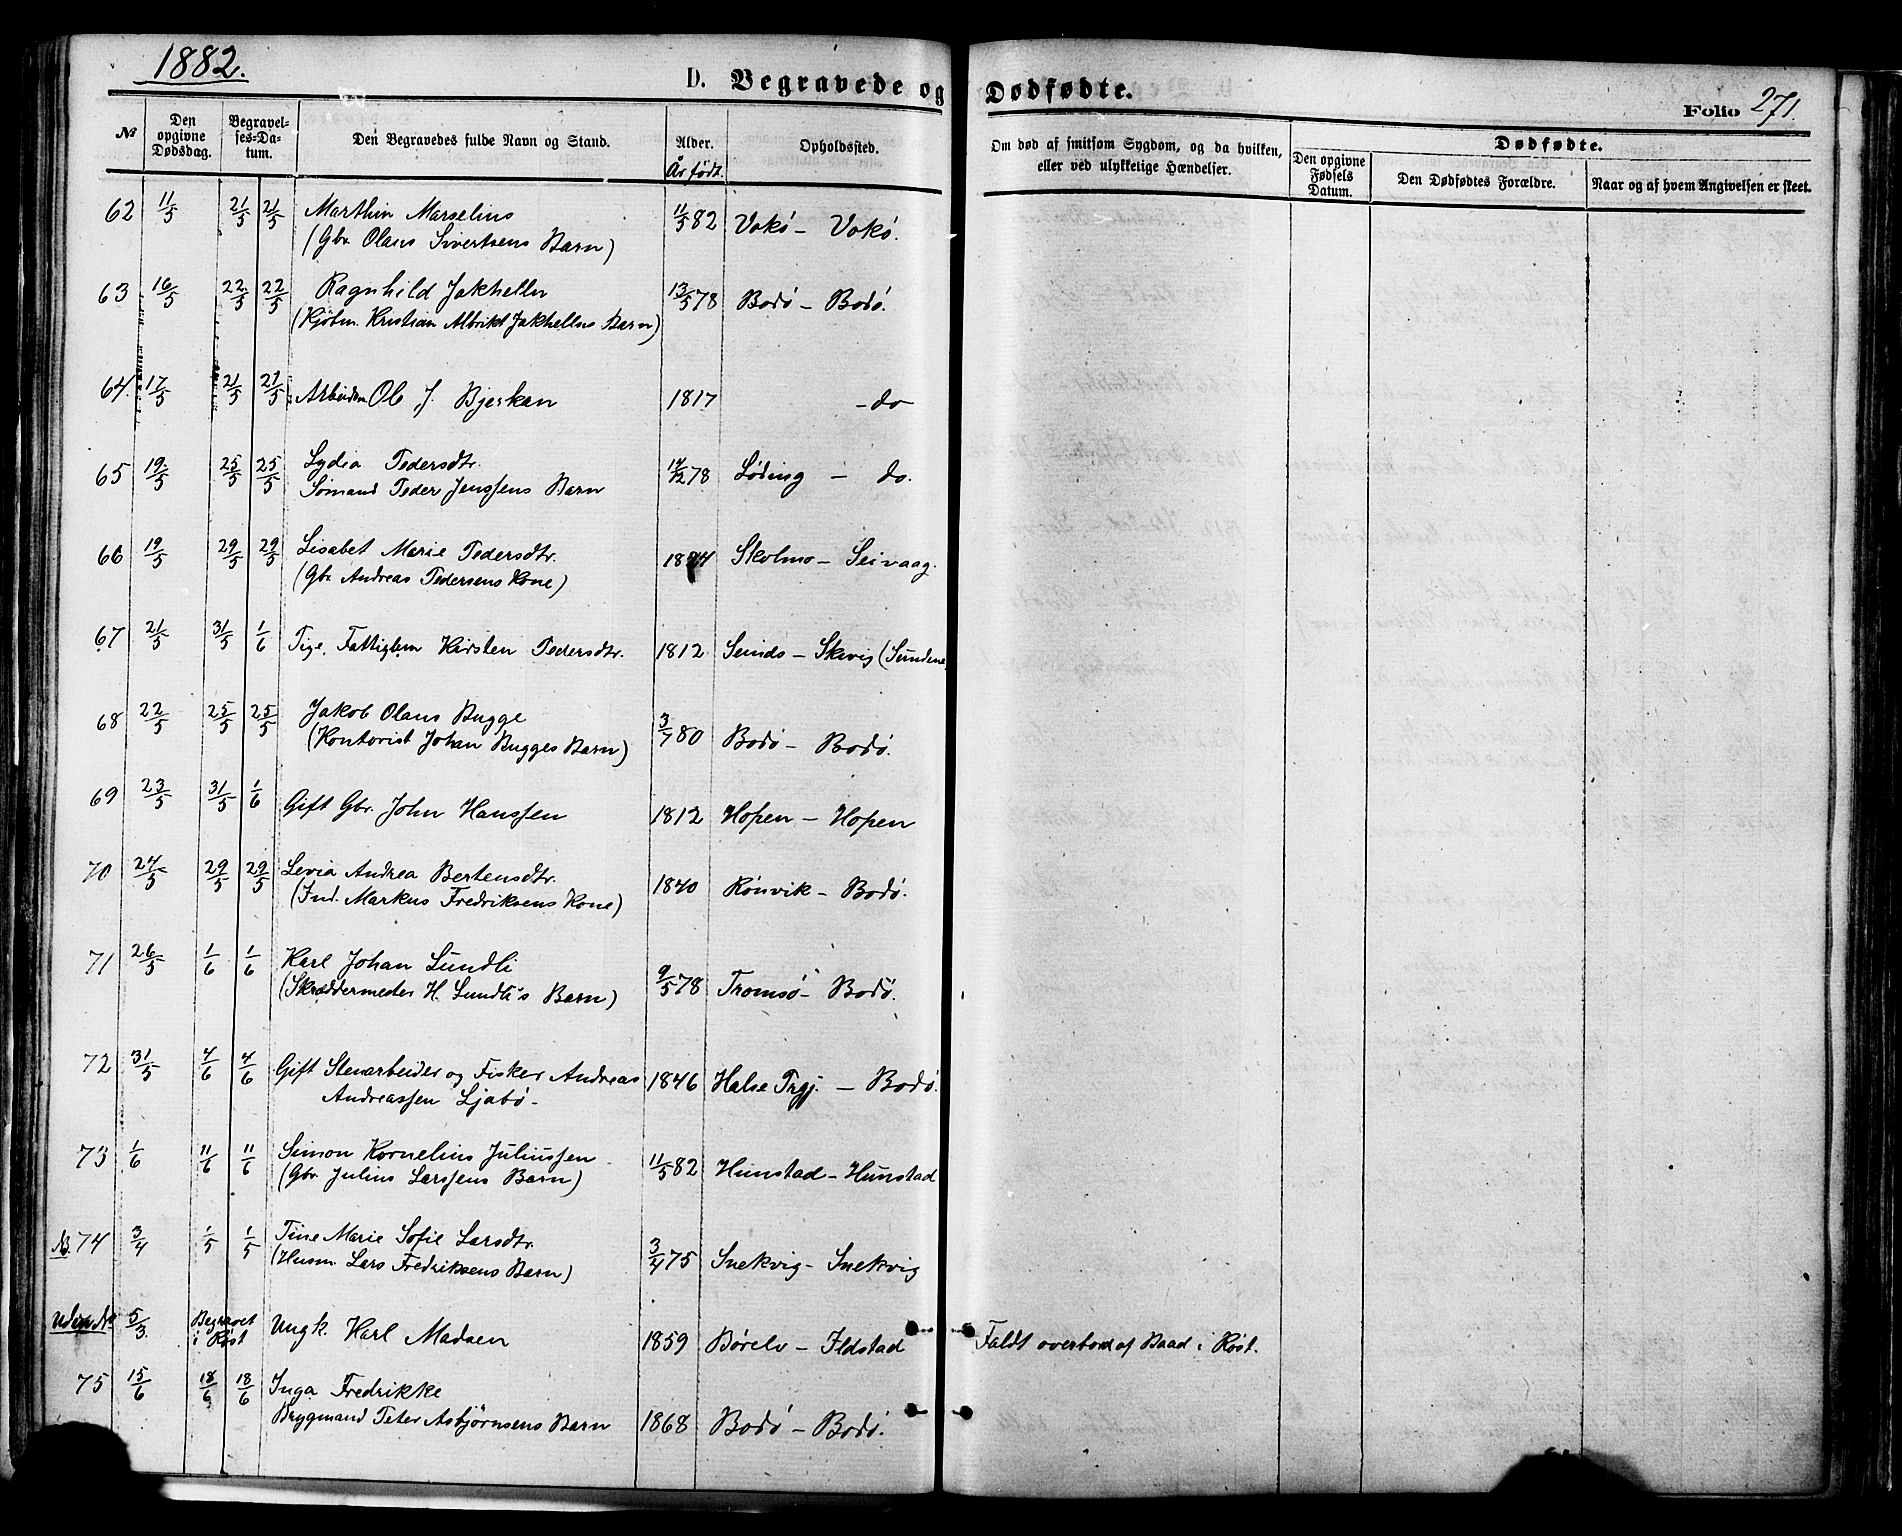 1882.
D. Begravede og Dødfødte.
Folio 271.
№
Den opgivne Dødsdag.
Begravel-ses-Da-tum.
Den Begravedes fulde Navn og Stand.
Alder.
År født.
Opholdssted.
Om død af smitsom Sygdom, og da hvilken, eller ved ulykkelige Hændelser.
Dødfødte.
Den opgivne Fødsels Datum.
Den Dødfødtes Forældre.
Naar og af hvem Angivelsen er skeet.
62 11/5 21/5 21/5 Marthin Marselius 11/5 82 Vokø - Vokø.
(Gbr. Olaus Sivertsens Barn)
63 16/5 22/5 22/5 Ragnhild Jakhelln 13/5 78 Bodø - Bodø.
(Kjøbm. Kristian Albrikt Jakhellns Barn)
64. 17/5 21/5 21/5 Arbeidsm. Ole J. Bjerkan 1817 - do
65 19/5 25/5 25/5 Lydia Pedersdtr. 78 Løding - do.
Sømand Peder Jenssens Barn
66 19/5 29/5 29/5 Lisabet Marie Pedersdtr. Skolmo - Seivaag.
(Gbr. Andreas Pedersens Kone)
67 21/5 31/5 1/6 Pige, Fattiglem Kirsten Pedersdtr. 1812 - Skivig (Sundene
68 22/5 25/5 25/5 Jakob Olaus Bugge 3/7 80 Bodø - Bodø.
(Kontorist Johan Bugges Barn)
69 23/5 31/5 1/6 Gift Gbr. John Hanssen 1812 Hopen - Hopen
70 24/5 29/5 29/5 Levia Andrea Bertensdtr. 1840 Rønvik - Bodø.
(Ind. Markus Fredriksens Kone)
71 26/5 1/6 1/6 Karl Johan Lundli 9/5 78 Tromsø - Bodø.
(Skræddermester H. Lundli's Barn)
72 31/5 4/6 4/6 Gift Stenarbeider og Fisker Andreas 1846 Halse Prgj. - Bodø.
Andreassen Ljabø -
73 1/6 11/6 11/6 Simon Kornelius Juliussen 11/5 82 Hunstad - Hunstad
(Gbr. Julius Larssens Barn)
N. 74 3/4 1/5 1/5 Tine Marie Sofie Larsdtr. 3/4 75 Snekvig - Snekvig
(Husm. Lars Fredriksens Barn)
Uden № 5/3 Begravet i Røst Ungk. Karl Madsen 1859 Børelv - Ildstad Faldt overbord af Baad i Røst.
75 15/6 18/6 18/6 Inga Fredrikke
Brygmand Peter Asbjørnsens Barn 1868 Bodø - Bodø.